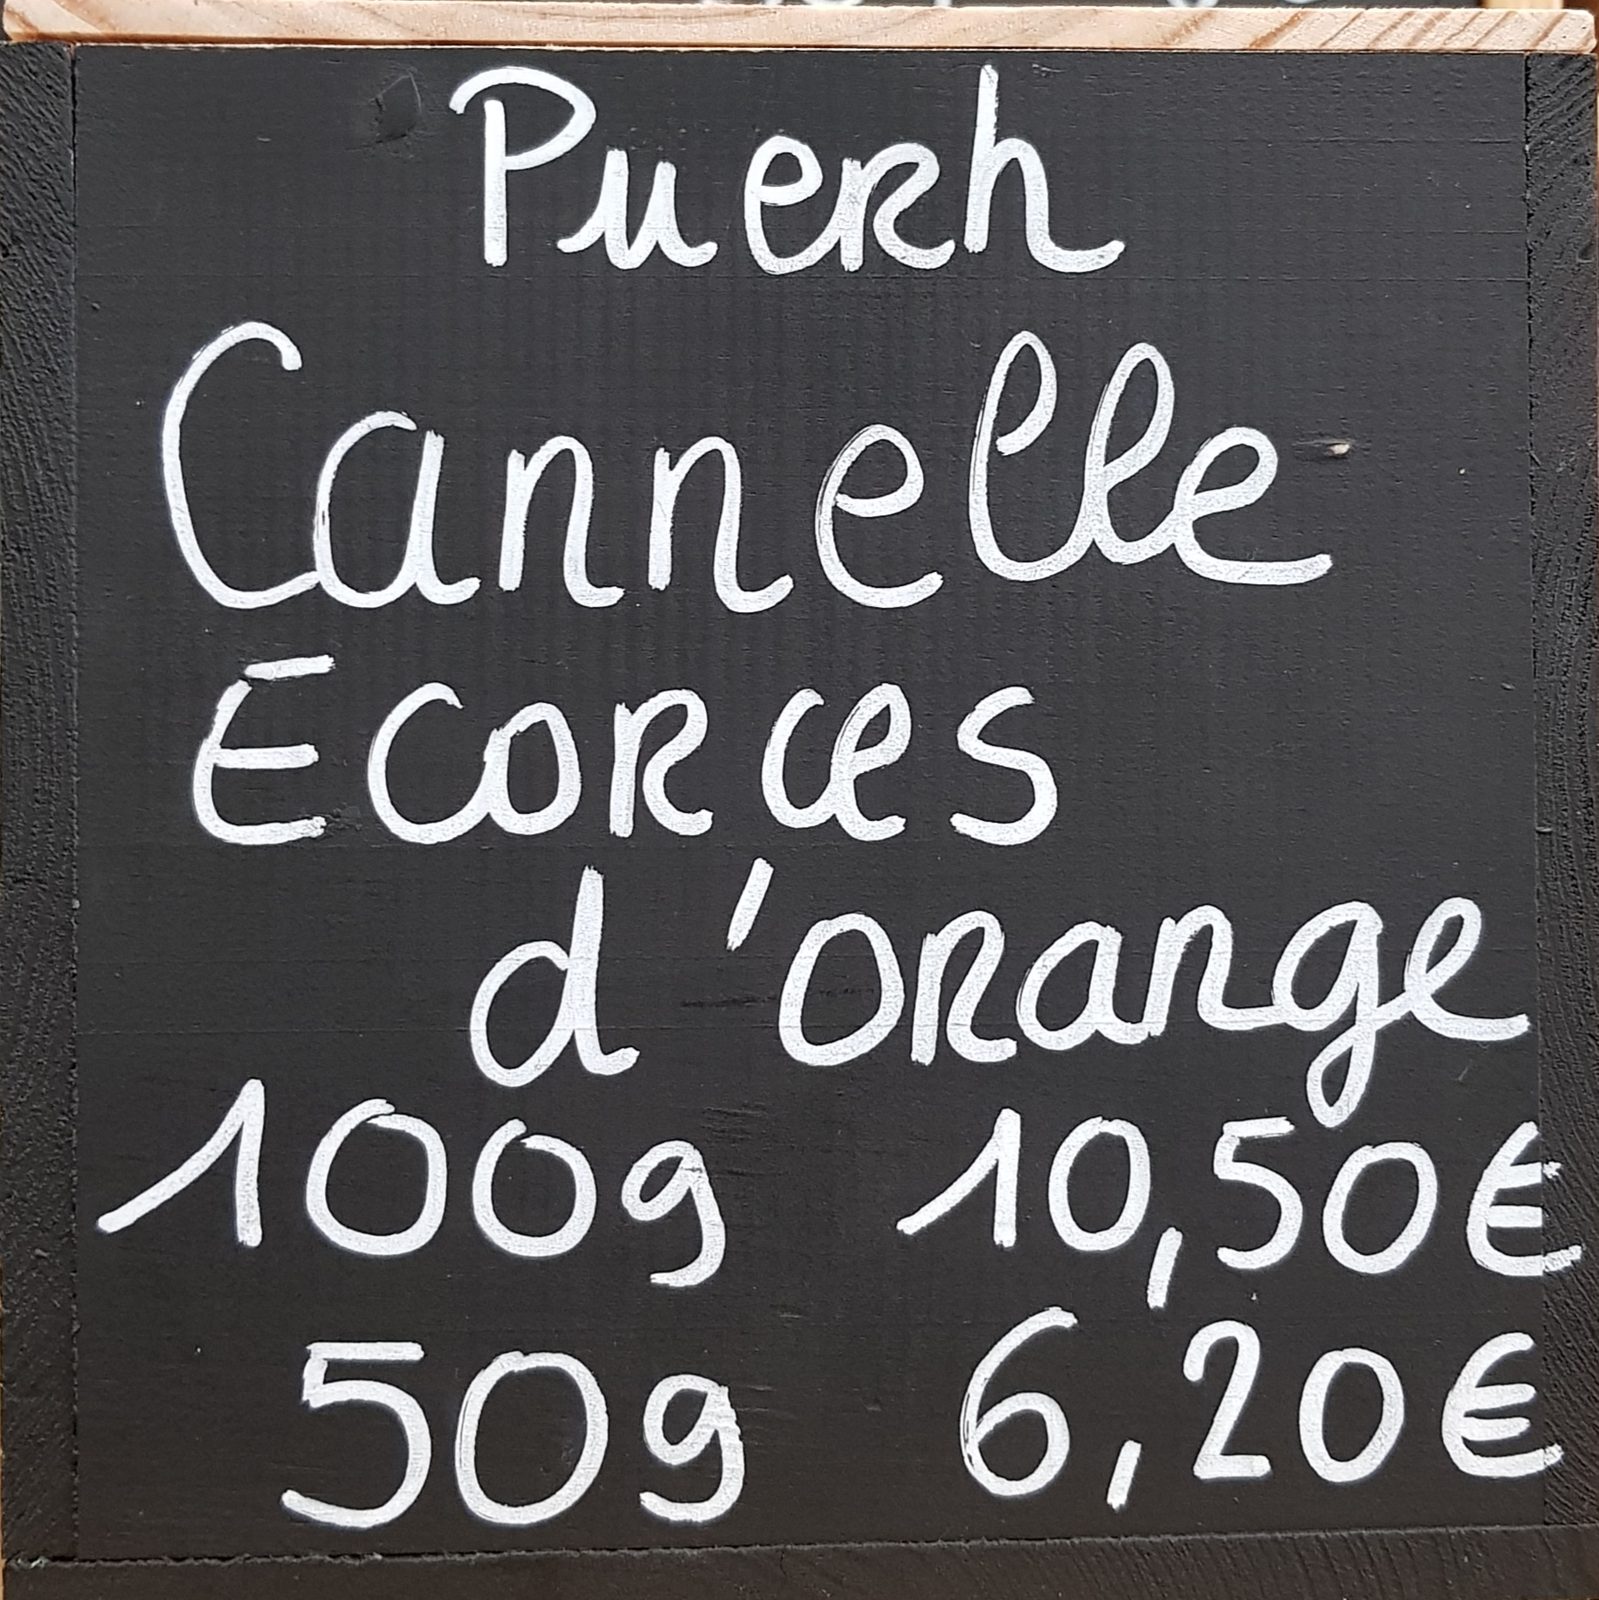 Puerh
Cannelle
Ecorces
d'orange
100g 10,50€
50g 6,20€